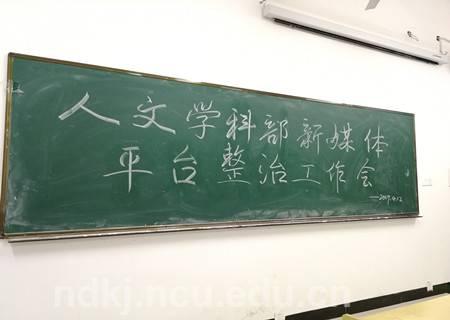 人文学科部新媒体
平台整治工作会
—2017.4.12
ndkj.ncu.edu.cn